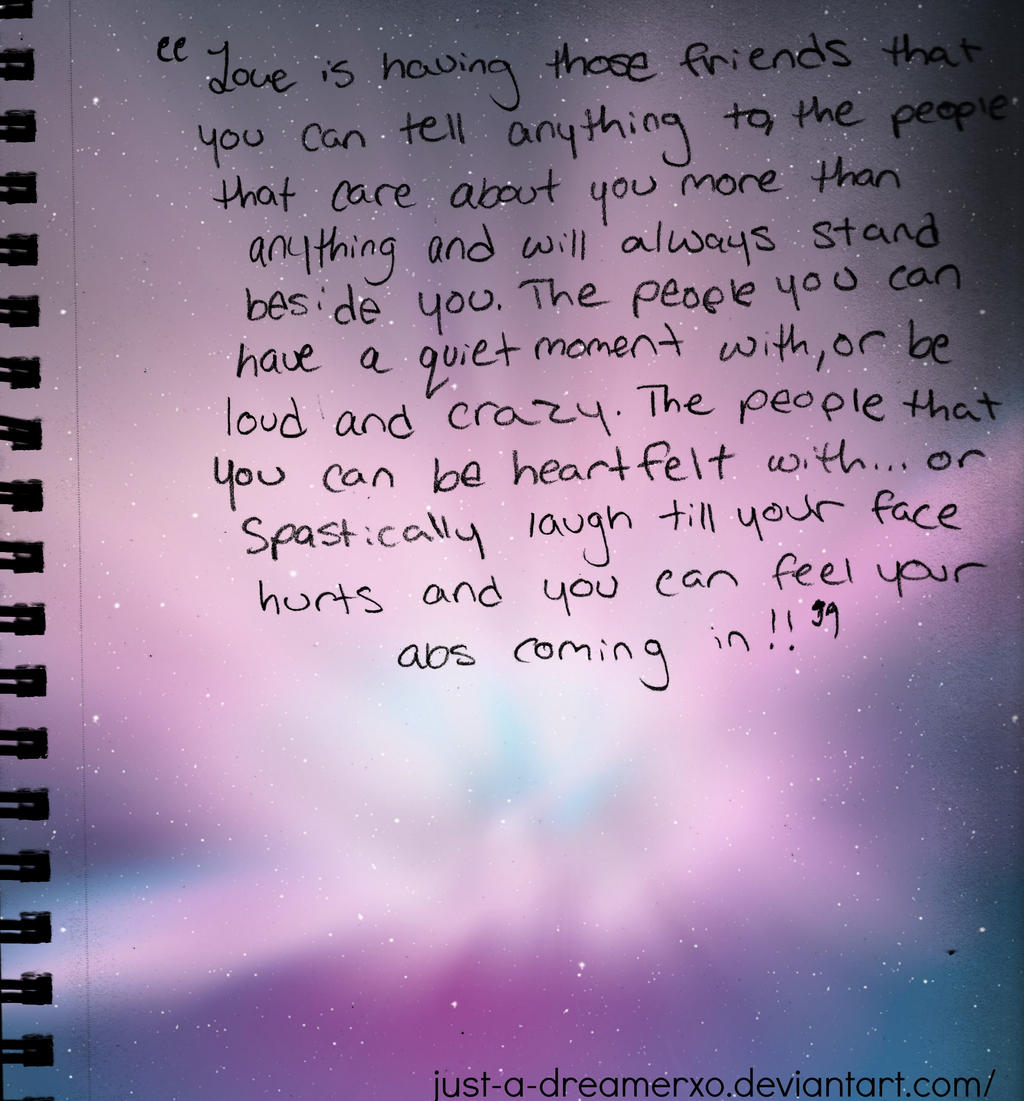 "Love is having those friends that
you can tell anything to, the people
that care about you more than
anything and will always stand
beside you. The people you can
have a quiet moment with, or be
loud and crazy. The people that
you can be heartfelt with... or
Spastically laugh till your face
hurts and you can feel your
abs coming in!!"
just-a-dreamerxo.deviantart.com/